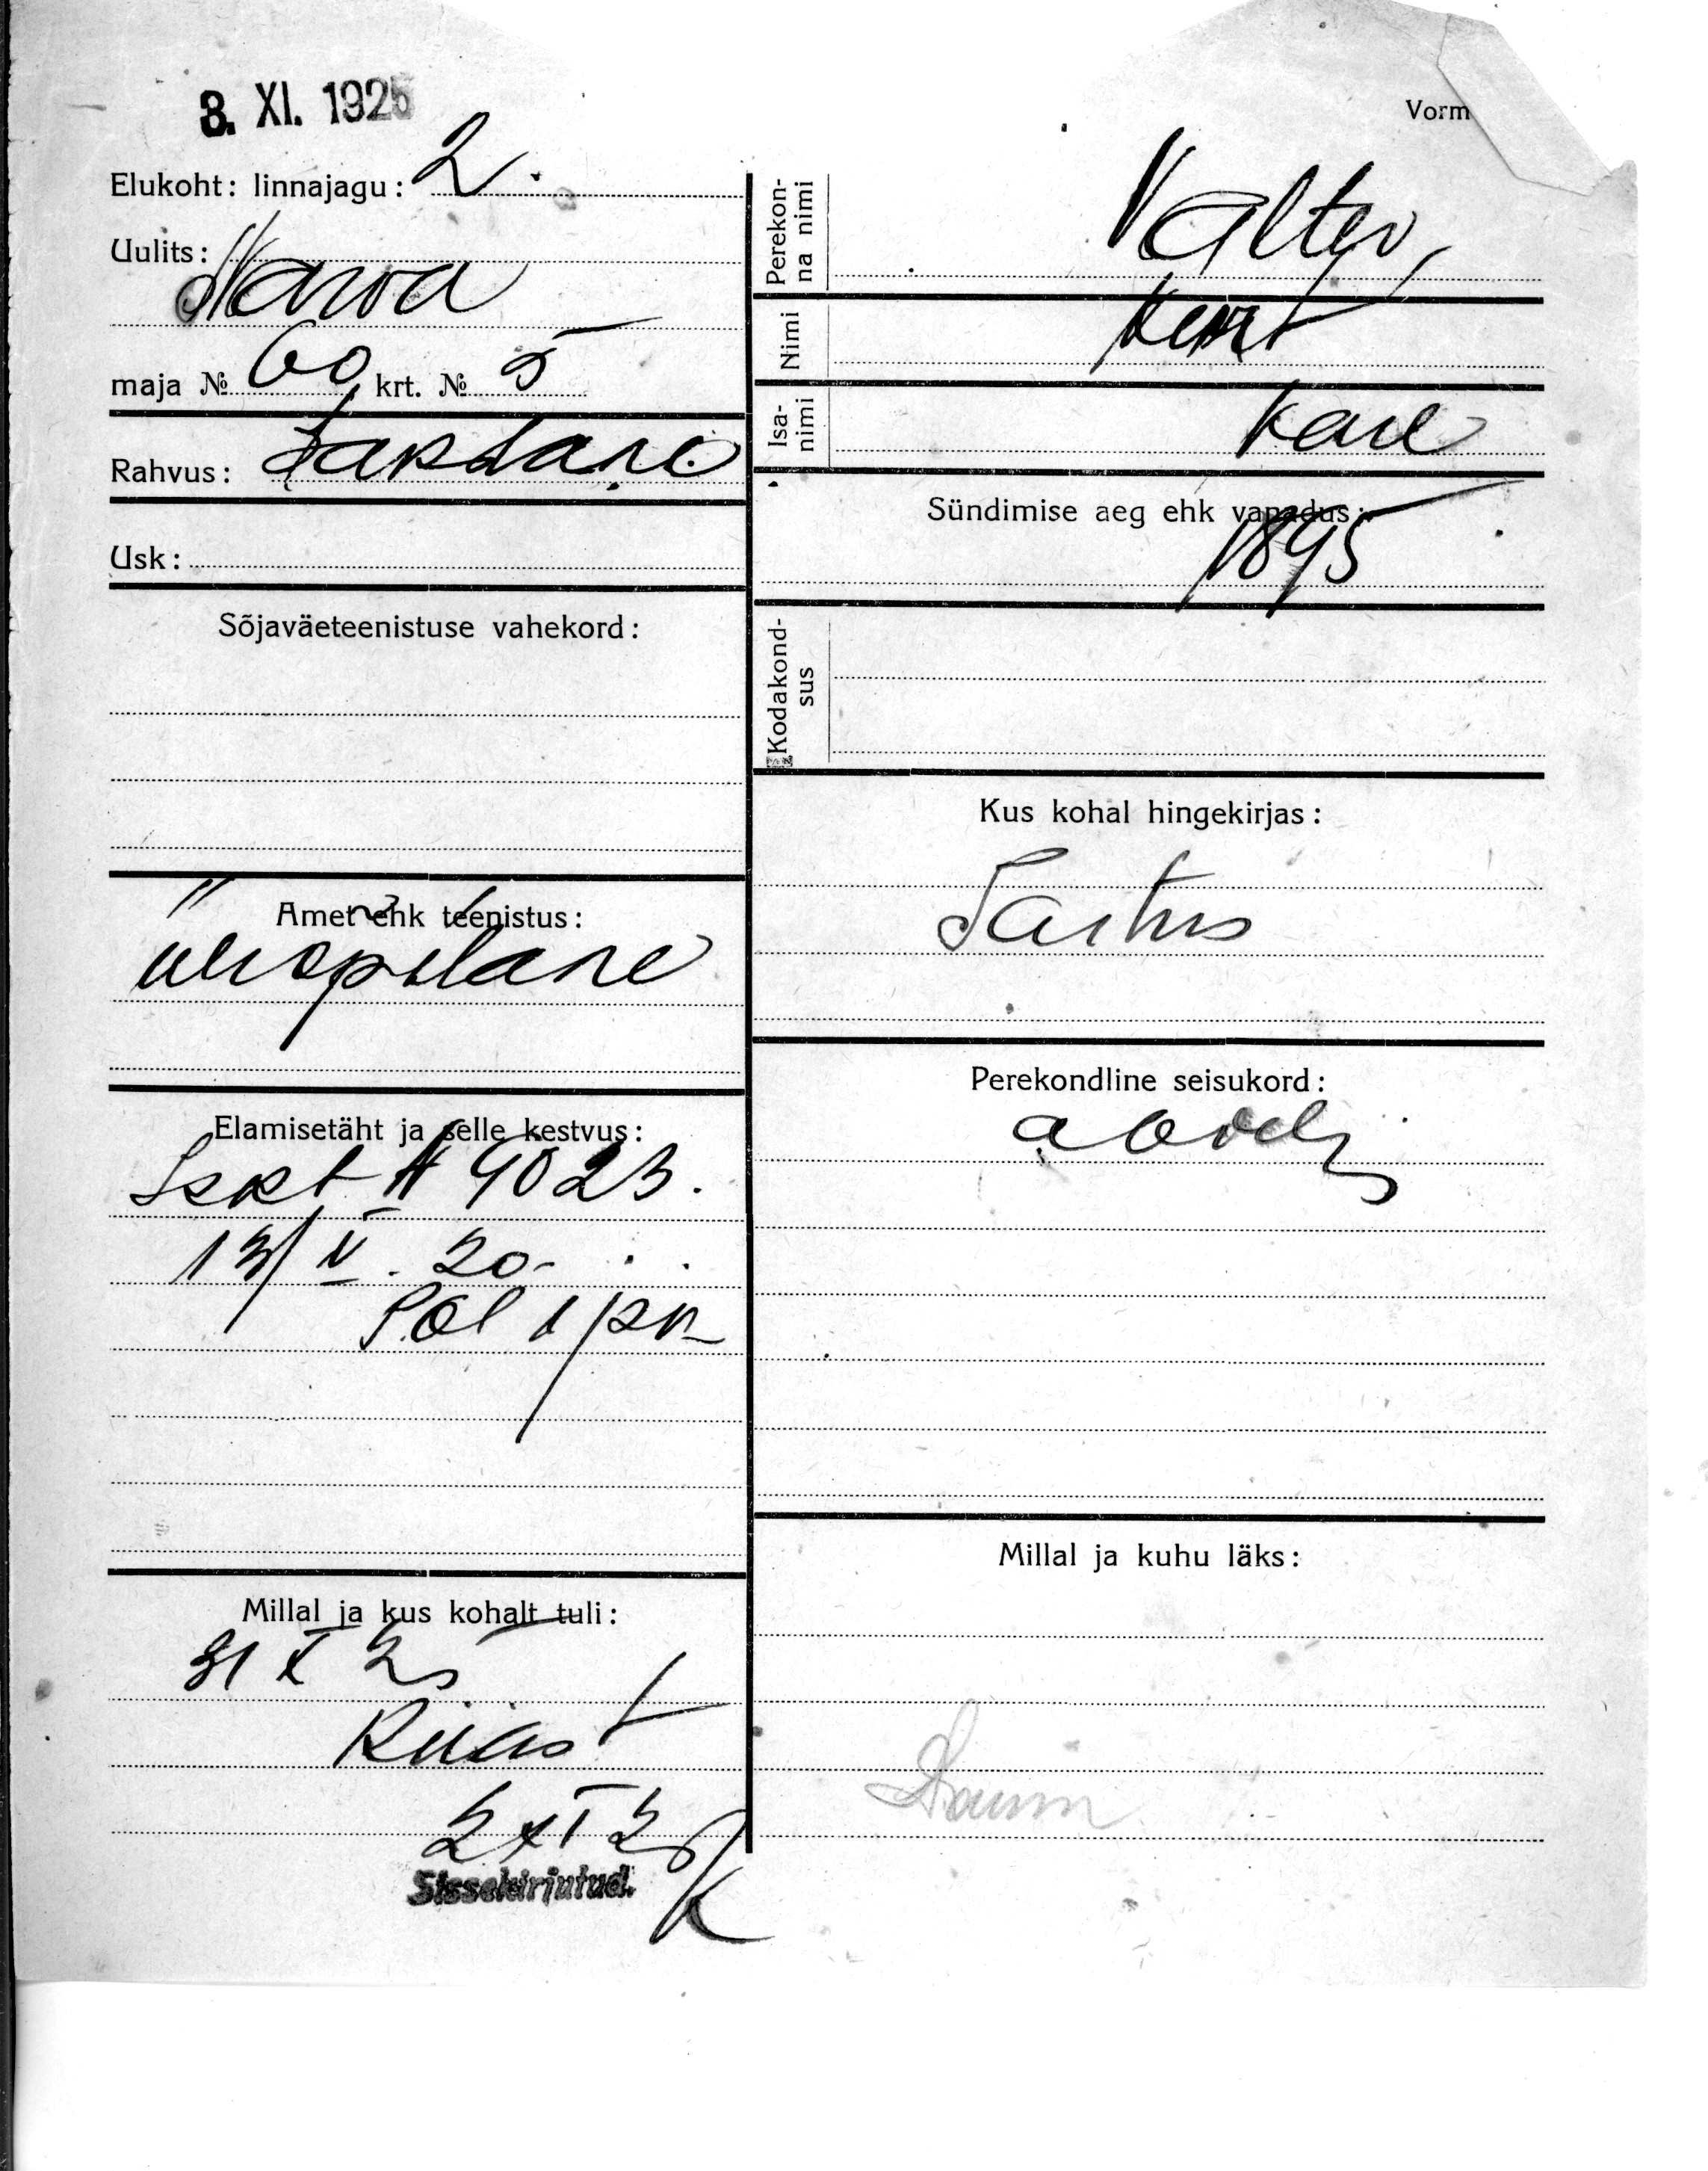 3. XI. 1925
Vorm
Elukoht: linnajagu: 2.
Uulits: Narva
maja № 60, krt. № 5
Rahvus: sakslane
Usk:
Sõjaväeteenistuse vahekord:
Amet ehk teenistus:
üliõpilane
Elamisetäht ja selle kestvus:
Iskt A 9023.
13/V. 20.
Pol 1 jsk
Millal ja kus kohalt tuli:
31 X 25
Riiast
2 XI 25
Sissekirjutud.
Perekonna nimi
Valter,
Nimi
Kurt
Isanimi
Karl
Sündimise aeg ehk vanadus:
1895
Kodakondsus
Kus kohal hingekirjas:
Tartus
Perekondline seisukord:
abielus
Millal ja kuhu läks: